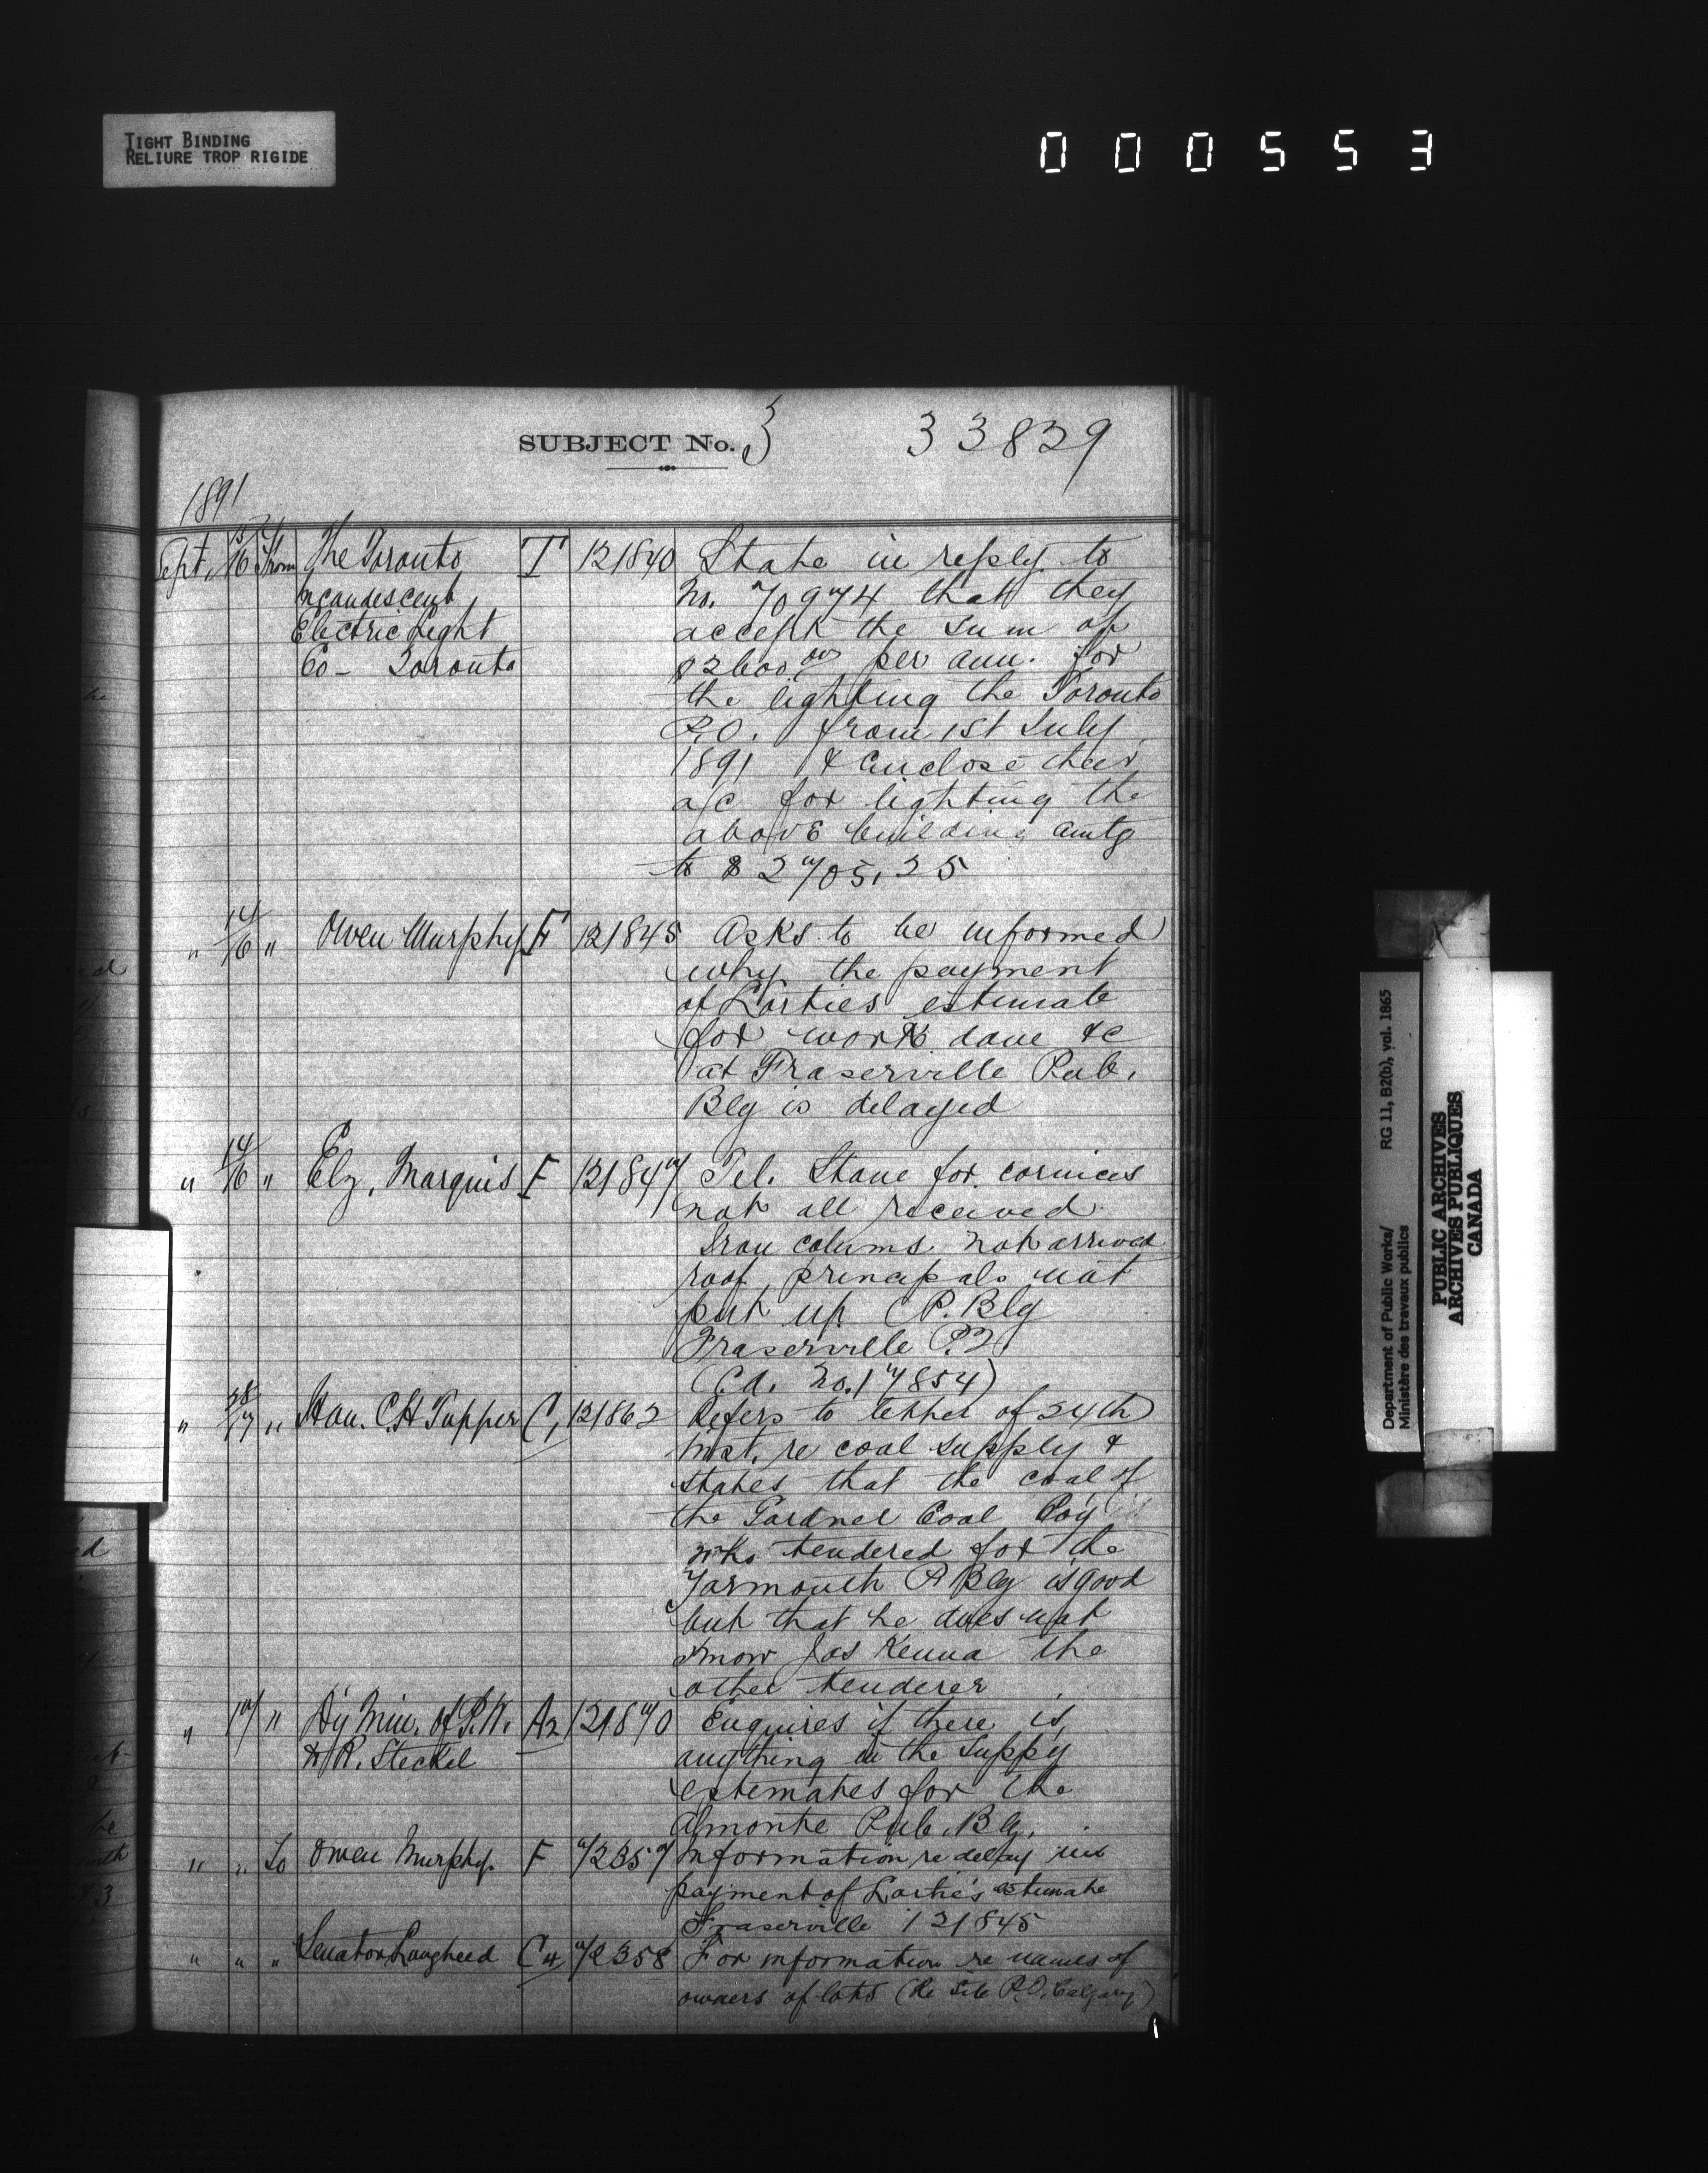 TIGHT BINDING
RELIURE TROP RIGIDE
000553
SUBJECT No. 3 33839
1891
Sept. 15/16 From The Toronto T 121840 State in reply to
Incandescent No. 70974 that they
Electric Light accept the sum of
Co - Toronto $2600.00 per ann. for
the lighting the Toronto
P.O. from 1st July
1891 & enclose their
a/c for lighting the
above building amtg
to $2705.25
" 14/16 " Owen Murphy F 121845 Asks to be informed
why the payment
of Lorties estimate
for work done &c
at Fraserville Pub.
Blg is delayed
" 14/16 " Elz. Marquis F 121847 Tel. Stone for cornices
not all received
Iron colums not arrived
roof principals not
put up (P. Blg
Fraserville P.Q
(Cd. No. 17854)
" 28/17 " Hon. C.H Tupper C1 121862 Refers to letter of 24th
inst. re coal supply &
states that the coal of
the Gardner Coal Coy is
who tendered for the
Yarmouth P Blg is good
but that he does not
know Jas Kenna the
other tenderer
" 17/ " Dy Min. of P.W. A2 121870 Enquires if there is
to R. Steckel anything in the Suppy
estemates for the
Almonte Pub. Blg.
" " To Owen Murphy F 72357 Information re delay in
payment of Lortie's estimate
Fraserville 121845
" " " Senator Lougheed C4 72358 For information re names of
owners of lots (Re Site P.O. Calgary)
Department of Public Works/ RG 11, B2(b), vol. 1865
Ministère des travaux publics
PUBLIC ARCHIVES
ARCHIVES PUBLIQUES
CANADA